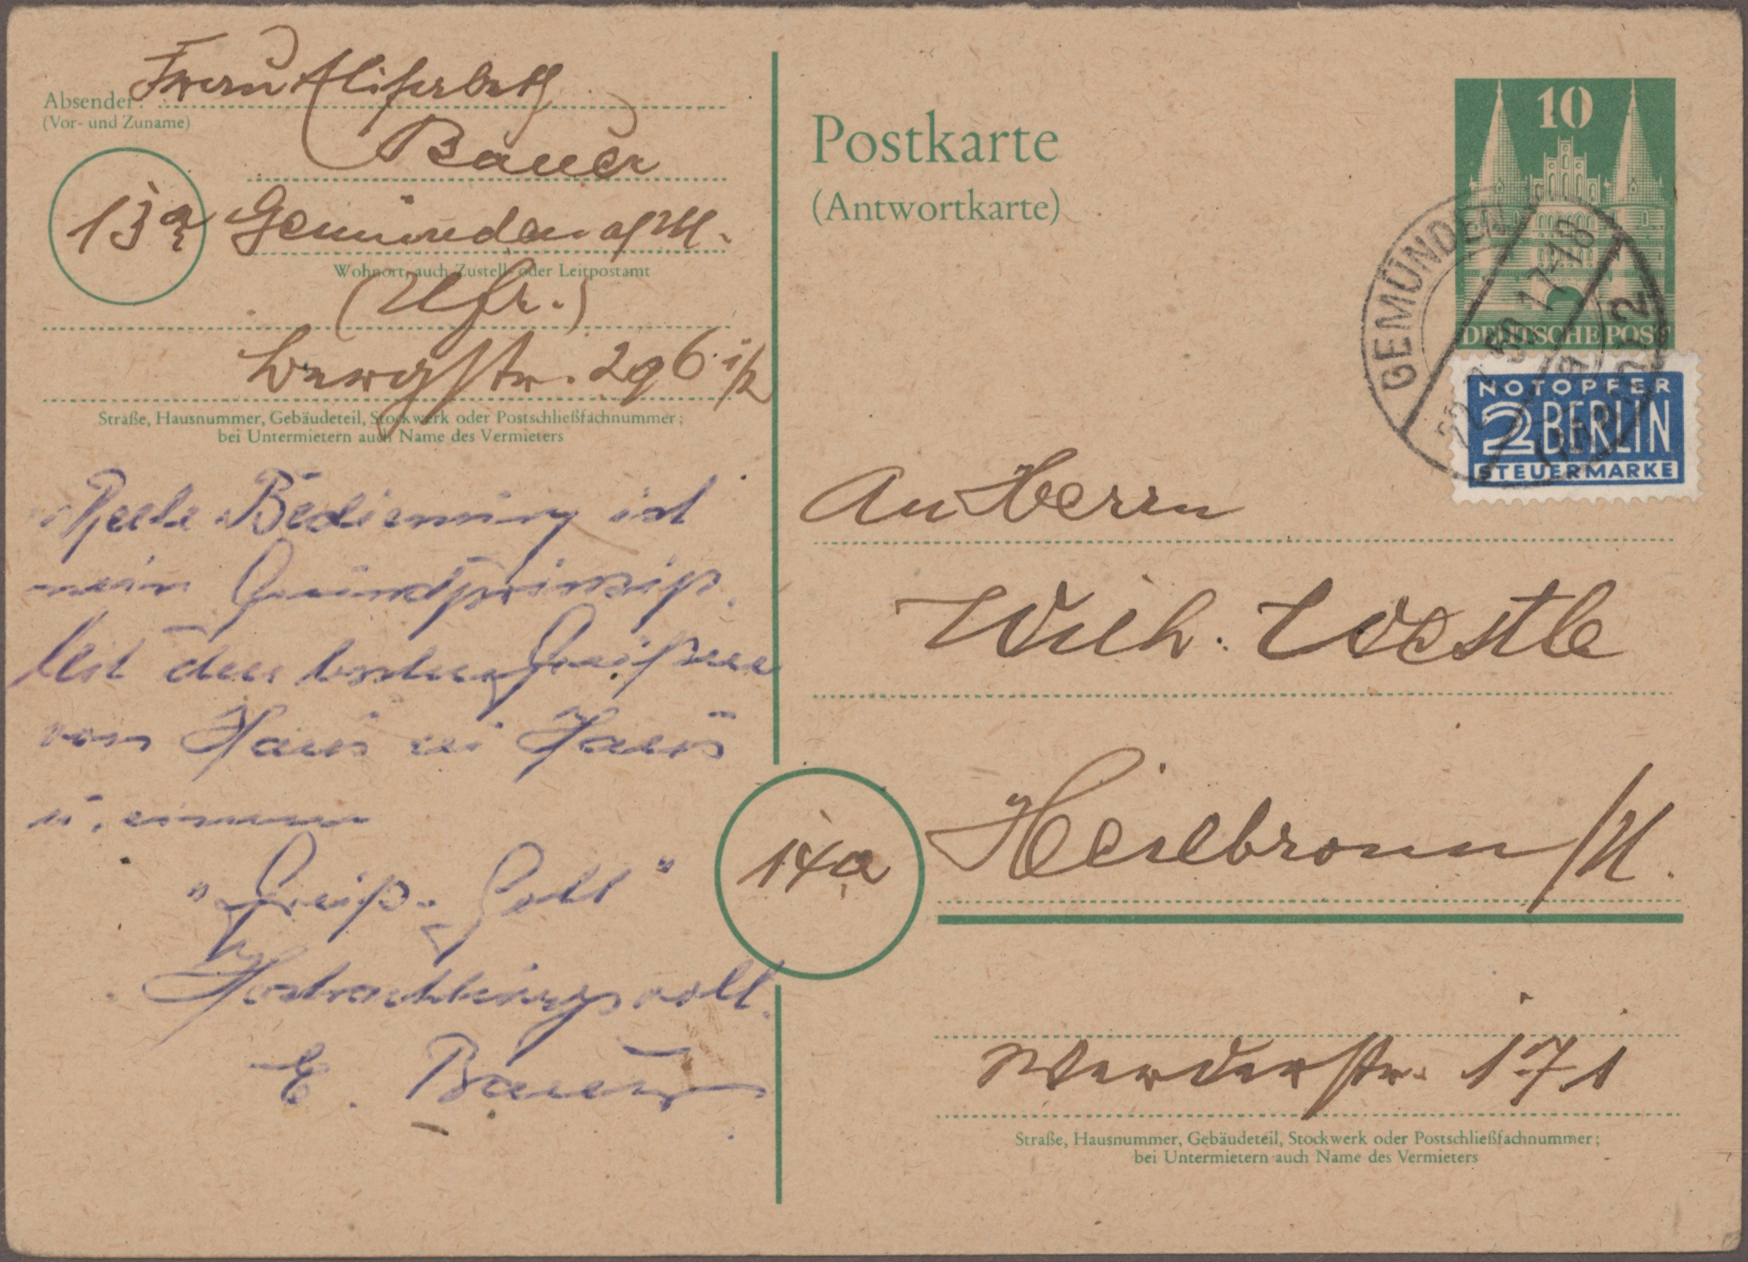 Absender:
(Vor- und Zuname)
Frau Elisabeth
Bauer
13a
Gemünden a/M.
Wohnort, auch Zustell- oder Leitpostamt
(Ufr.)
Bergstr. 296 1/2
Straße, Hausnummer, Gebäudeteil, Stockwerk oder Postschließfachnummer;
bei Untermietern auch Name des Vermieters
Reele Bedienung ist
mein Grundprinzip.
Mit den besten Grüßen
von Haus zu Haus
u. einem
"Grüß Gott"
Hochachtungsvoll
E. Bauer
Postkarte
(Antwortkarte)
10
DEUTSCHE POST
GEMÜNDEN
22.7.50 17-18
NOTOPFER
2 BERLIN
STEUERMARKE
An Herrn
Wilh. Westle
14a
Heilbronn /N.
Werderstr. 171
Straße, Hausnummer, Gebäudeteil, Stockwerk oder Postschließfachnummer;
bei Untermietern auch Name des Vermieters